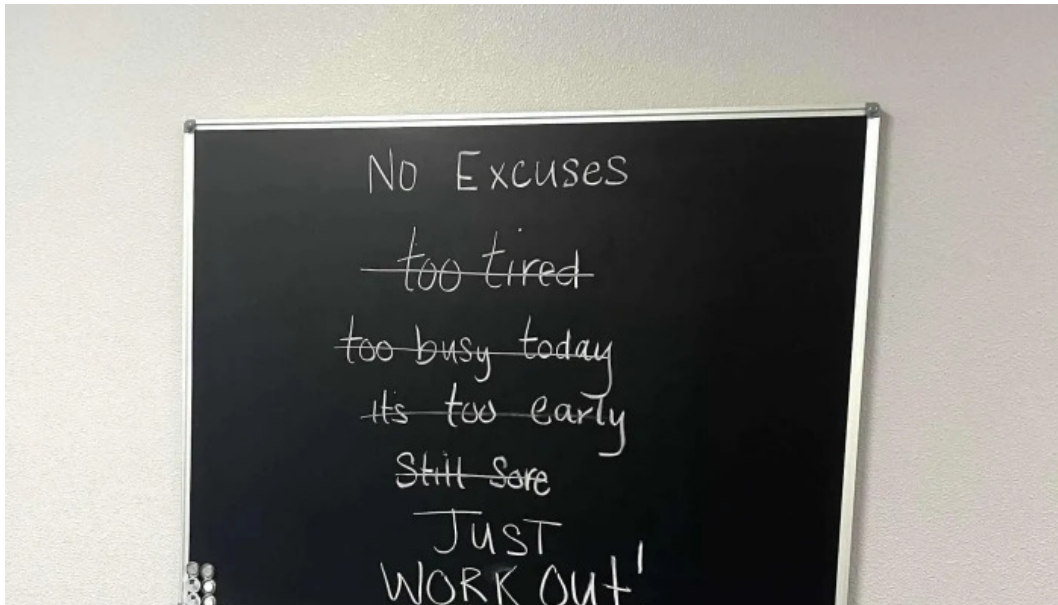 No Excuses
too tired
too busy today
it's too early
Still Sore
JUST
WORK OUT!